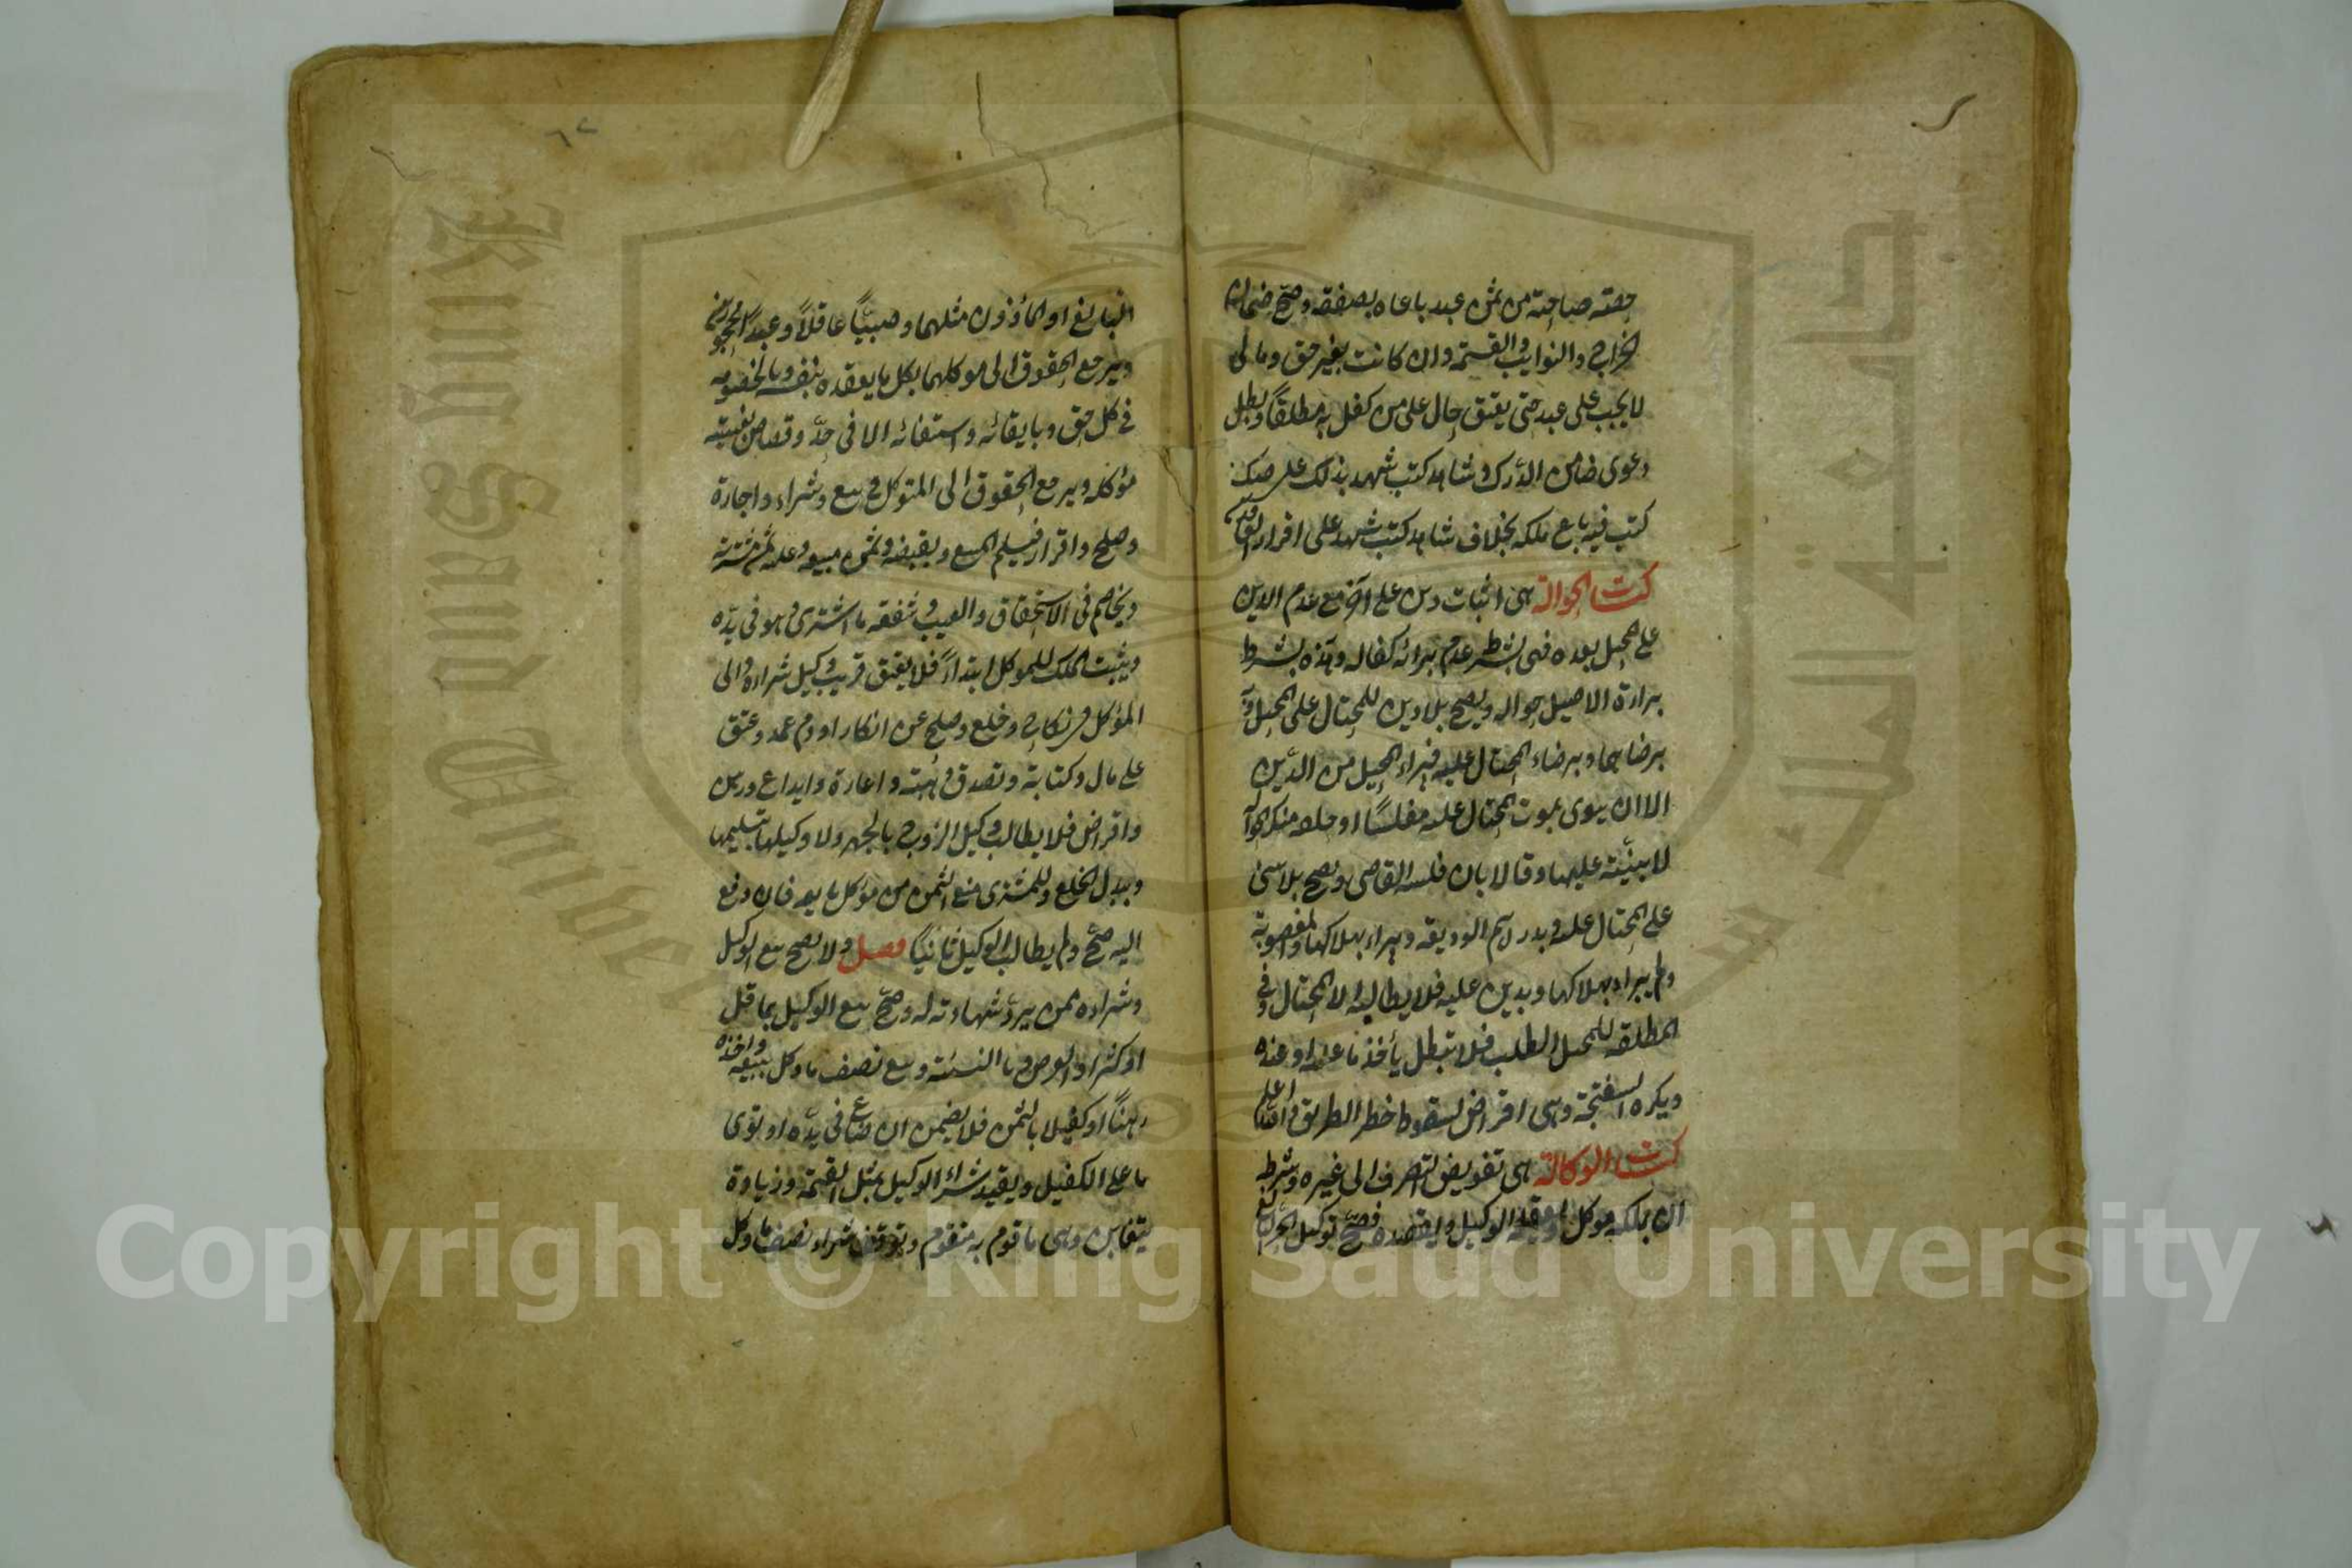 حصته صاحبه من ثمن عبد باعاه بصفقة وصح ضمان
الخراج والنوايب والقسمة وان كانت بغير حق ومال
لا يجب على عبد حتى يعتق حال على من كفل به مطلقاً وبطل
دعوى ضامن الدرك وشاهد كتب شهد بذلك على صك
كتب فيه باع ملكه بخلاف شاهد كتب شهد على اقرار العاقدين
كتاب الحوالة هى اثبات دين على آخر مع عدم الدين
على المحيل بعده فهى بشرط عدم برائة كفالة وهذه بشرط
براءة الاصيل حوالة ويصح بلا دين للمحتال على المحيل
برضاهما وبرضاء المحتال عليه فبراء المحيل من الدين
الا ان يتوى بموت المحتال عليه مفلسًا او حلفه منكر حوالة
لا بينة عليها وقالا بان فلسه القاضى وتصح بلا شئ
على المحتال عليه وبدراهم الوديعة ويبراء بهلاكها والمغصوبة
ولم يبراء بهلاكها وبدين عليه فلا يطالبه الا المحتال وفى
المطلقة للمحيل الطلب فلا تبطل بأخذ ما عليه او عنده
ويكره السفتجة وهى اقراض لسقوط خطر الطريق
كتاب الوكالة هى تفويض التصرف الى غيره وشرط
ان يملكه موكل او يعقله الوكيل ويقصده فصح توكيل الحر
البالغ او المأذون مثلهما وصبيّاً عاقلاً وعبداً محجورين
ويرجع الحقوق الى موكلهما بكل ما يعقده بنفسه وبالخصومة
فى كل حق وبايفائه واستيفائه الا فى حدّ وقصاص بغيبة
مؤكله ويرجع الحقوق الى المتوكل فى بيع وشراء واجارة
وصلح واقرار فيسلم المبيع ويقبضه وثمن مبيعه وعليه ثمن مشتريه
ويخاصم فى الاستحقاق والعيب وشفعة ما اشترى وهو فى يده
ويثبت الملك للموكل ابتداءً فلا يعتق قريب وكيل شراه والى
المؤكل فى نكاح وخلع وصلح عن انكار او دم عمد وعتق
على مال وكتابة وتصدق وهبة واعارة وايداع ورهن
واقراض فلا يطالب وكيل الزوج بالمهر ولا وكيلها بتسليمها
وببدل الخلع وللمشترى منع الثمن من مؤكل بايعه فان دفع
اليه صح ولم يطالب الوكيل ثانياً فصل ولا يصح بيع الوكيل
وشراءه ممن يردّ شهادته له وصح بيع الوكيل بما قل
او كثر او العرض وبالنسئة وبيع نصف ما وكل ببيعه واخذه
رهناً او كفيلا بالثمن فلا يضمن ان ضاع فى يده او توى
ما على الكفيل ويقيد شراء الوكيل بمثل القيمة وزيادة
يتغابن وهى ما قوم به مقوم ويتوقف شراء نصف ما وكل
Copyright © King Saud University